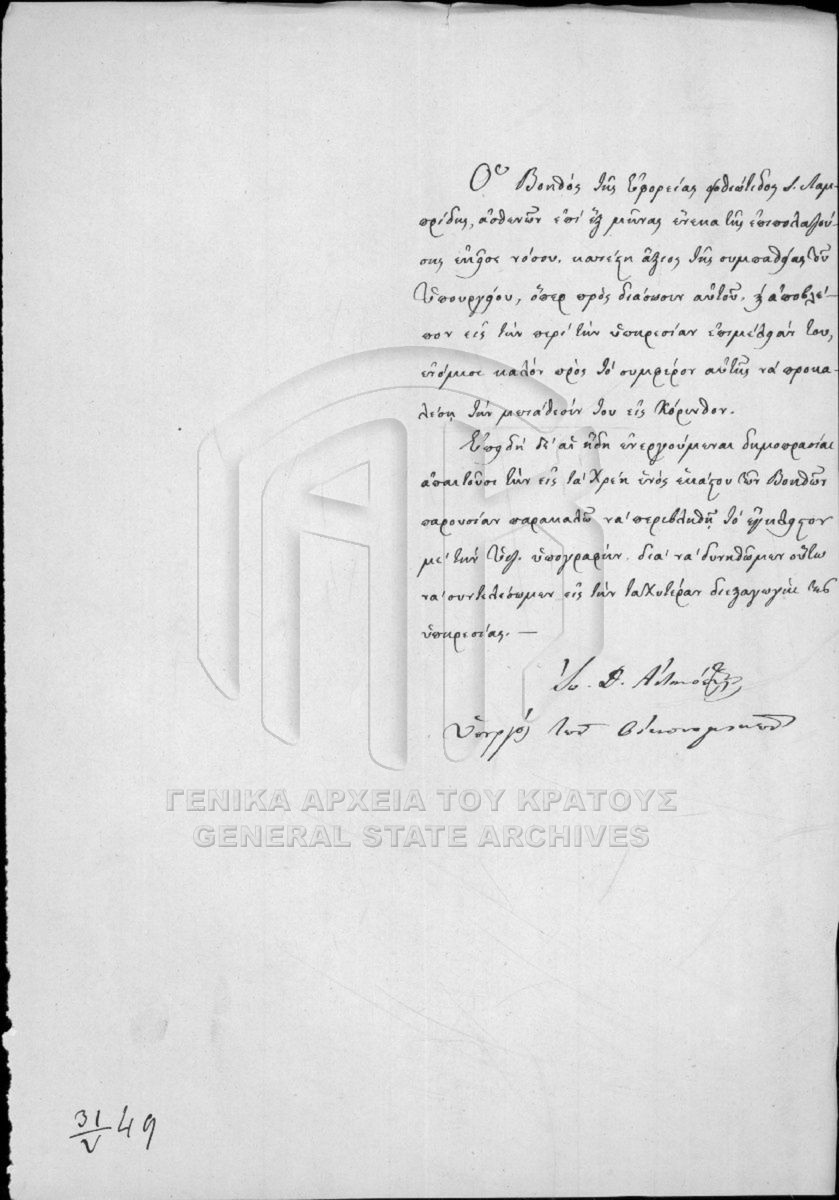 Ὁ Βοηθὸς τῆς Ἐφορείας Φθιώτιδος Λαμ-
πρίδης, ἀσθενῶν ἐπὶ ἓξ μῆνας ἕνεκα τῆς ἐπιπολαζού-
σης νόσου, κατέστη ἄξιος τῆς συμπαθείας τοῦ
Ὑπουργείου, ὅπερ πρὸς διάσωσιν αὐτοῦ, ἀποβλέ-
πον εἰς τὴν περὶ τὴν ὑπηρεσίαν ἐπιμέλειάν του,
ἐνόμισε καλὸν πρὸς τὸ συμφέρον αὐτῆς νὰ προκα-
λέσῃ τὴν μετάθεσίν του εἰς Κόρινθον.
Ἐπειδὴ δ' αἱ ἤδη ἐνεργούμεναι δημοπρασίαι
ἀπαιτοῦσι τὴν εἰς τὰ χρέη ἑνὸς ἑκάστου τῶν Βοηθῶν
παρουσίαν παρακαλῶ νὰ περιβληθῇ τὸ ἔγκλειστον
μὲ τὴν Ὑψ. ὑπογραφήν, διὰ νὰ δυνηθῶμεν οὕτω
νὰ συντελέσωμεν εἰς τὴν ταχυτέραν διεξαγωγὴν τῆς
ὑπηρεσίας. —
Ὑπουργὸς τῶν Οἰκονομικῶν
ΓΕΝΙΚΑ ΑΡΧΕΙΑ ΤΟΥ ΚΡΑΤΟΥΣ
GENERAL STATE ARCHIVES
31/V 49